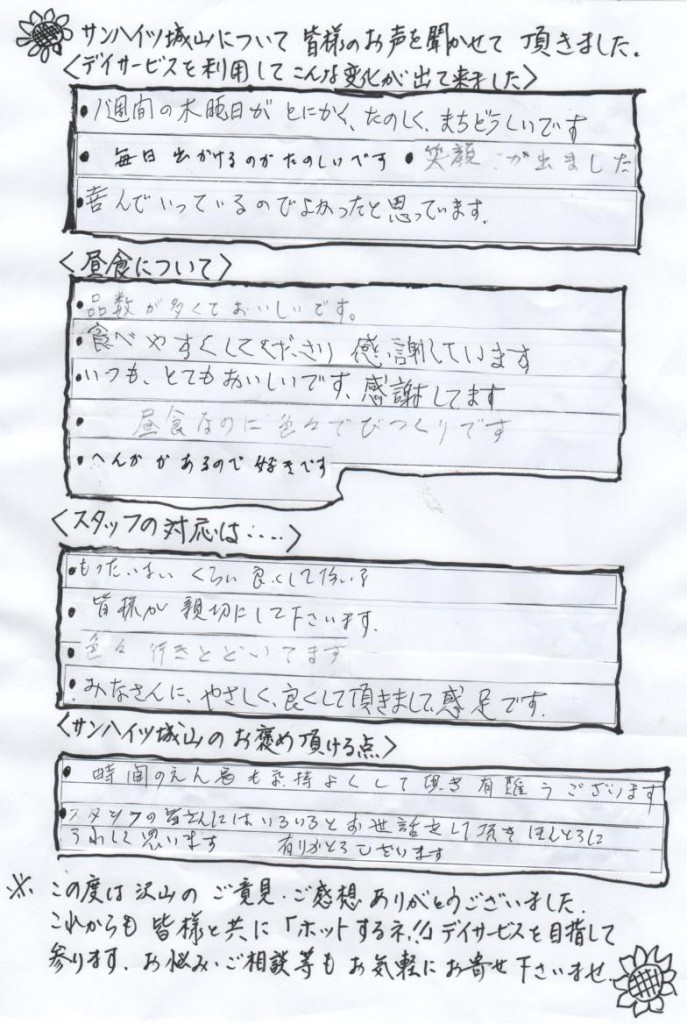 サンハイツ城山について 皆様のお声を聞かせて 頂きました.
〈デイサービスを利用して こんな変化が出て来ました〉
・1週間の木曜日が とにかく、たのしく、まちどうしいです
・毎日 出かけるのが たのしいです ・笑顔 が出ました
・喜んでいっているのでよかったと思っています.
〈昼食について〉
・品数が多くておいしいです。
・食べやすくしてくださり 感謝しています
・いつも、とてもおいしいです、感謝してます
・昼食なのに色々でびっくりです
・へんかがあるので 好きです
〈スタッフの対応は‥‥〉
・もったいない くらい 良くして
・皆様が 親切にして下さいます.
・色々 行きとどいてます
・みなさんに、やさしく、良くして頂きまして、感足です.
〈サンハイツ城山のお褒め頂ける点〉
・時間の も気持よくして頂き有難うございます
・スタッフの皆さんにはいろいろとお世話をして頂きほんとうに
うれしく思います 有りがとうございます
※. この度は沢山の ご意見・ご感想 ありがとうございました.
これからも 皆様と共に「ホットするネ!!」デイサービスを目指して
参ります. お悩み・ご相談等も お気軽に お寄せ 下さいませ